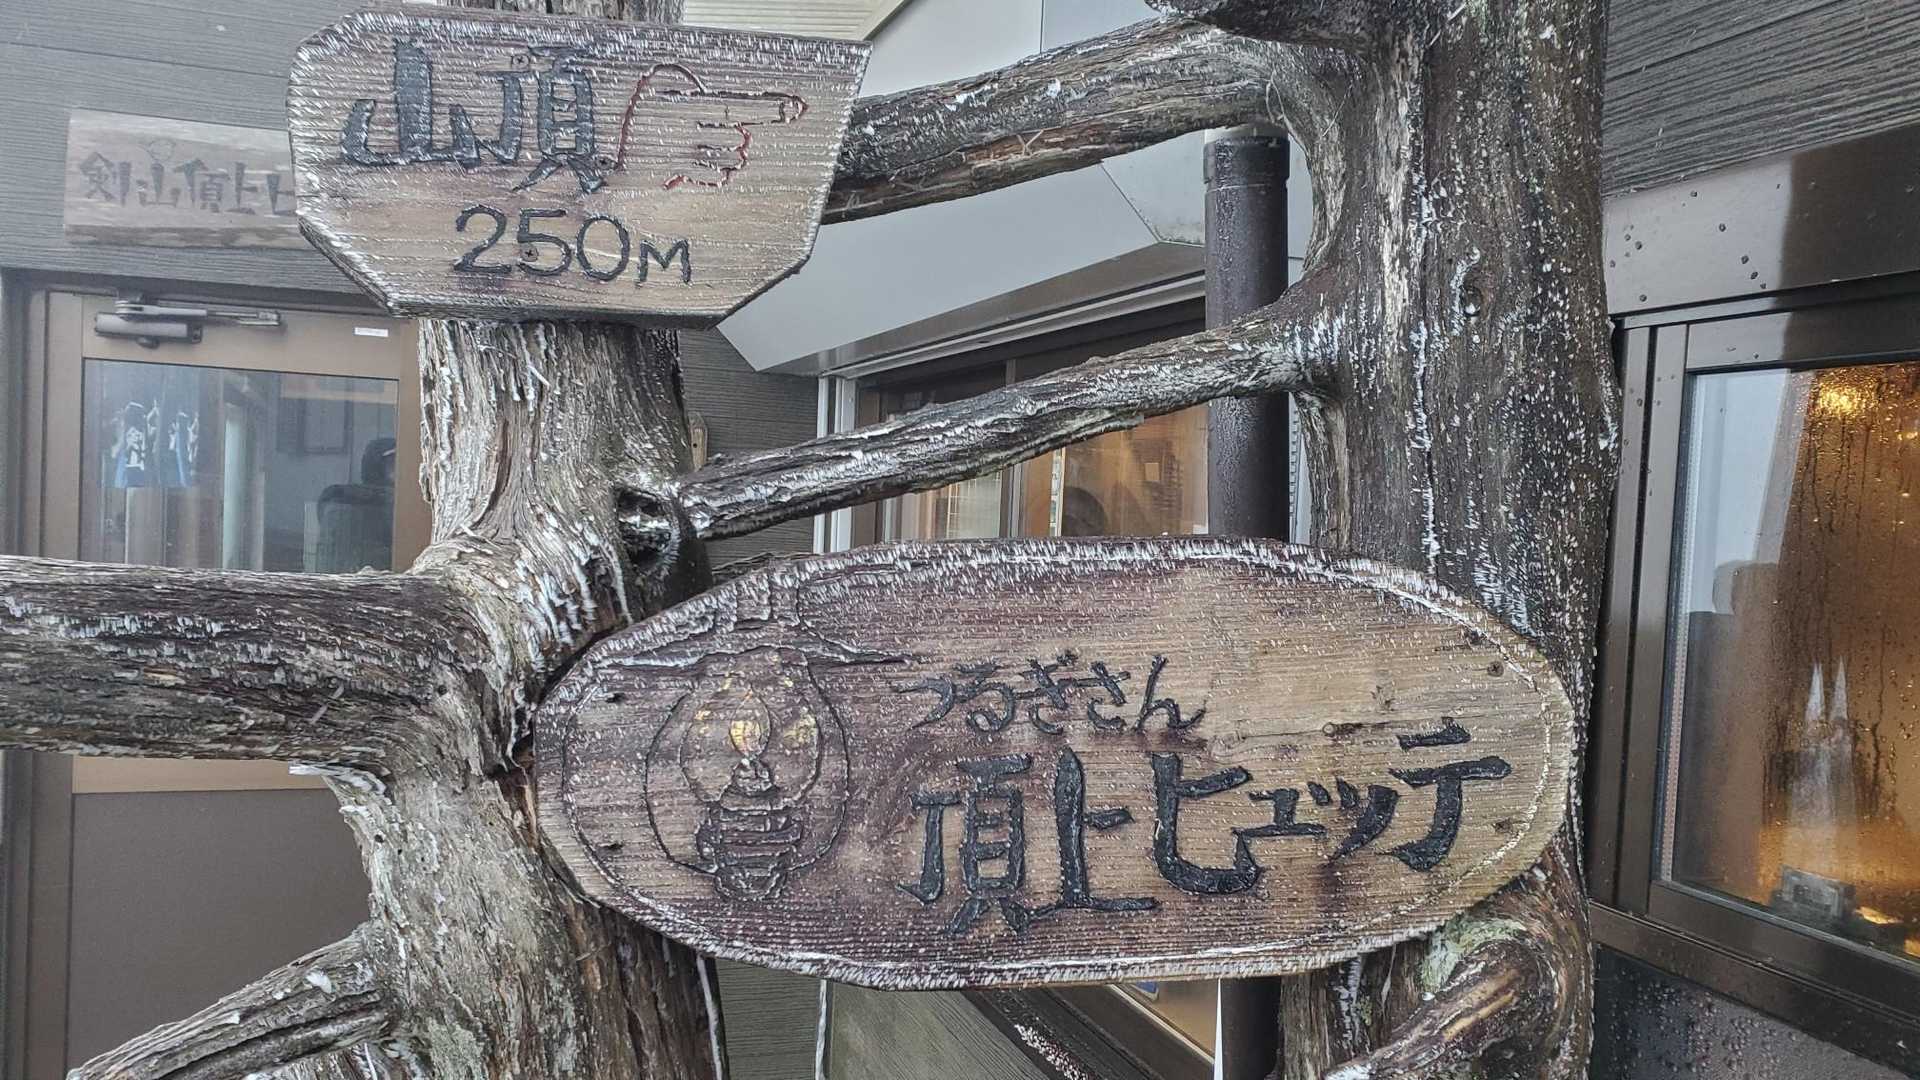 山頂
250M
剣山頂上ヒ
つるぎさん
頂上ヒュッテ